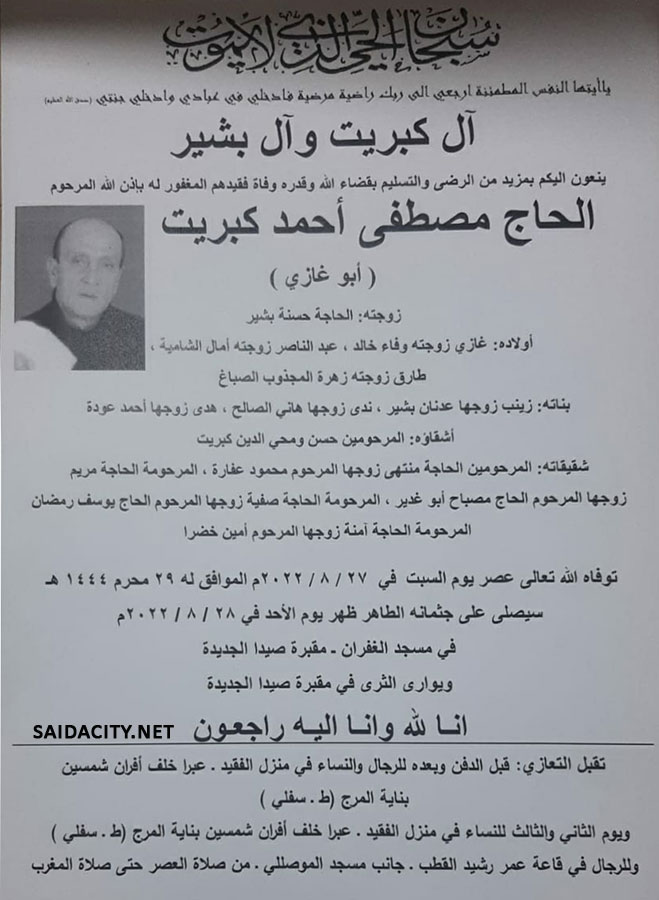 سبحان الحي الذي لا يموت
ياأيتها النفس المطمئنة ارجعي الى ربك راضية مرضية فادخلي في عبادي وادخلي جنتي (صدق الله العظيم)
آل كبريت وآل بشير
ينعون اليكم بمزيد من الرضى والتسليم بقضاء الله وقدره وفاة فقيدهم المغفور له بإذن الله المرحوم
الحاج مصطفى أحمد كبريت
( أبو غازي )
زوجته: الحاجة حسنة بشير
أولاده: غازي زوجته وفاء خالد ، عبد الناصر زوجته أمال الشامية ،
طارق زوجته زهرة المجذوب الصباغ
بناته: زينب زوجها عدنان بشير ، ندى زوجها هاني الصالح ، هدى زوجها أحمد عودة
أشقاؤه: المرحومين حسن ومحي الدين كبريت
شقيقاته: المرحومين الحاجة منتهى زوجها المرحوم محمود عفارة ، المرحومة الحاجة مريم
زوجها المرحوم الحاج مصباح أبو غدير ، المرحومة الحاجة صفية زوجها المرحوم الحاج يوسف رمضان
المرحومة الحاجة آمنة زوجها المرحوم أمين خضرا
توفاه الله تعالى عصر يوم السبت في ٢٧ / ٨ / ٢٠٢٢م الموافق له ٢٩ محرم ١٤٤٤ هـ
سيصلى على جثمانه الطاهر ظهر يوم الأحد في ٢٨ / ٨ / ٢٠٢٢م
في مسجد الغفران ـ مقبرة صيدا الجديدة
ويوارى الثرى في مقبرة صيدا الجديدة
انا لله وانا اليه راجعون
SAIDACITY.NET
تقبل التعازي: قبل الدفن وبعده للرجال والنساء في منزل الفقيد . عبرا خلف أفران شمسين
بناية المرج (ط . سفلي )
ويوم الثاني والثالث للنساء في منزل الفقيد . عبرا خلف أفران شمسين بناية المرج (ط . سفلي )
وللرجال في قاعة عمر رشيد القطب . جانب مسجد الموصللي . من صلاة العصر حتى صلاة المغرب